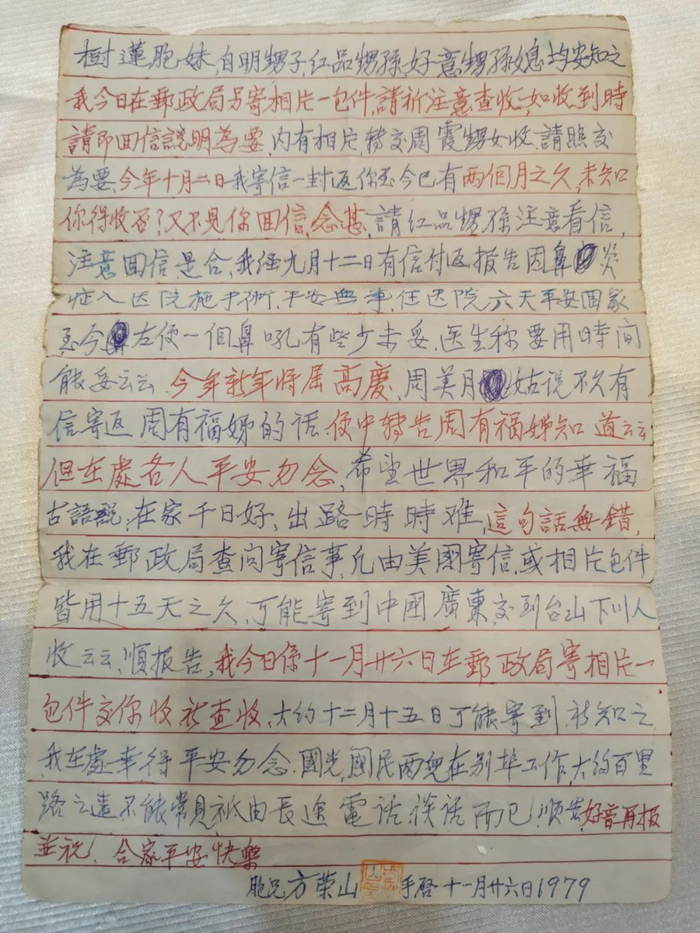 樹蓮胞妹,白明甥子,紅品甥孫,好意甥孫媳均安知之
我今日在郵政局另寄相片一包件,請祈注意查收,如收到時
請即回信説明為要,內有相片,轉交周霞甥女收,請照交
為要今年十月二日我寄信一封返你至今已有兩個月之久,未知
你得收否?又不見你回信,念甚,請紅品甥孫注意看信,
注意回信是合,我經九月十二日有信付返報告因鼻炎
症入医院施手術,平安無事,住医院六天平安回家
至今左便一個鼻吼有些少未妥,医生称要用時間
能妥云云,今年新年時居高慶,周美月姑说不久有
信寄返周有福娣的话,便中轉告周有福娣知道云云
但在處各人平安勿念,希望世界和平的幸福
古語說,在家千日好,出路時時难,這句話無錯,
我在郵政局查问寄信事,凡由美國寄信,或相片包件
皆用十五天之久,可能寄到中国廣東,交到台山下川人
收云云,順报告,我今日係十一月廿六日在郵政局寄相片一
包件交你收祈查收,大約十二月十五日可能寄到,祈知之,
我在處幸得平安勿念,國光,國民两兒在别埠工作,大約百里
路之遠不能常見祇由長途電话谈话而已,順告,好音再报
並祝!合家平安快樂
胞兄方榮山 手啓十一月廿六日1979